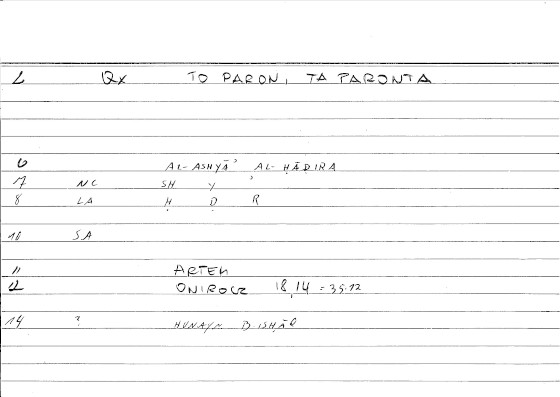 1 Qx TO PARON, TA PARONTA
6 AL-ASHYĀʾ AL-ḤĀḌIRA
7 NC SH Y ʾ
8 LA Ḥ Ḍ R
10 SA
11 ARTEM
12 ONIROCR 18,14 = 35.12
14 ? ḤUNAYN B ISḤĀQ